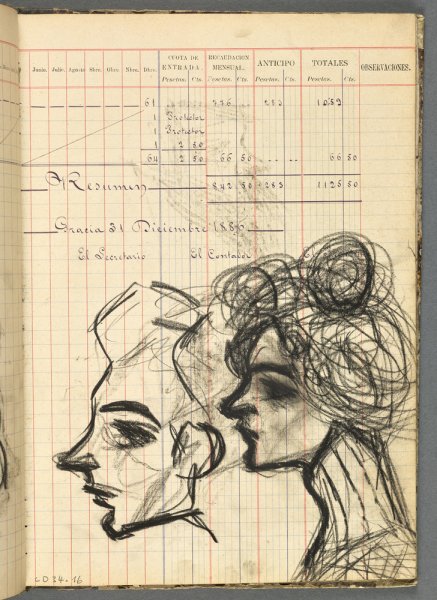 CUOTA DE ENTRADA. RECAUDACION MENSUAL. ANTICIPO TOTALES OBSERVACIONES.
Junio. Julio. Agosto Sbre. Obre. Nbre. Dbre. Pesetas. Cts. Pesetas. Cts. Pesetas. Cts. Pesetas. Cts.
61 776 283 1059
1 Protector
1 Protector
1 2 50
64 2 50 66 50 " " 66 50
Resumen 842 50 283 1125 50
Gracia 31 Diciembre 1886
El Secretario El Contador